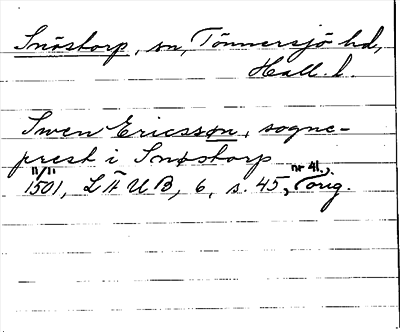 Snöstorp, sn, Tönnersjö hd,
Hall. l.
Swen Ericsson, sogne-
prest i Snøstorp
11/11 nr 41.
1501, L Ä U B, 6, s. 45, (orig.